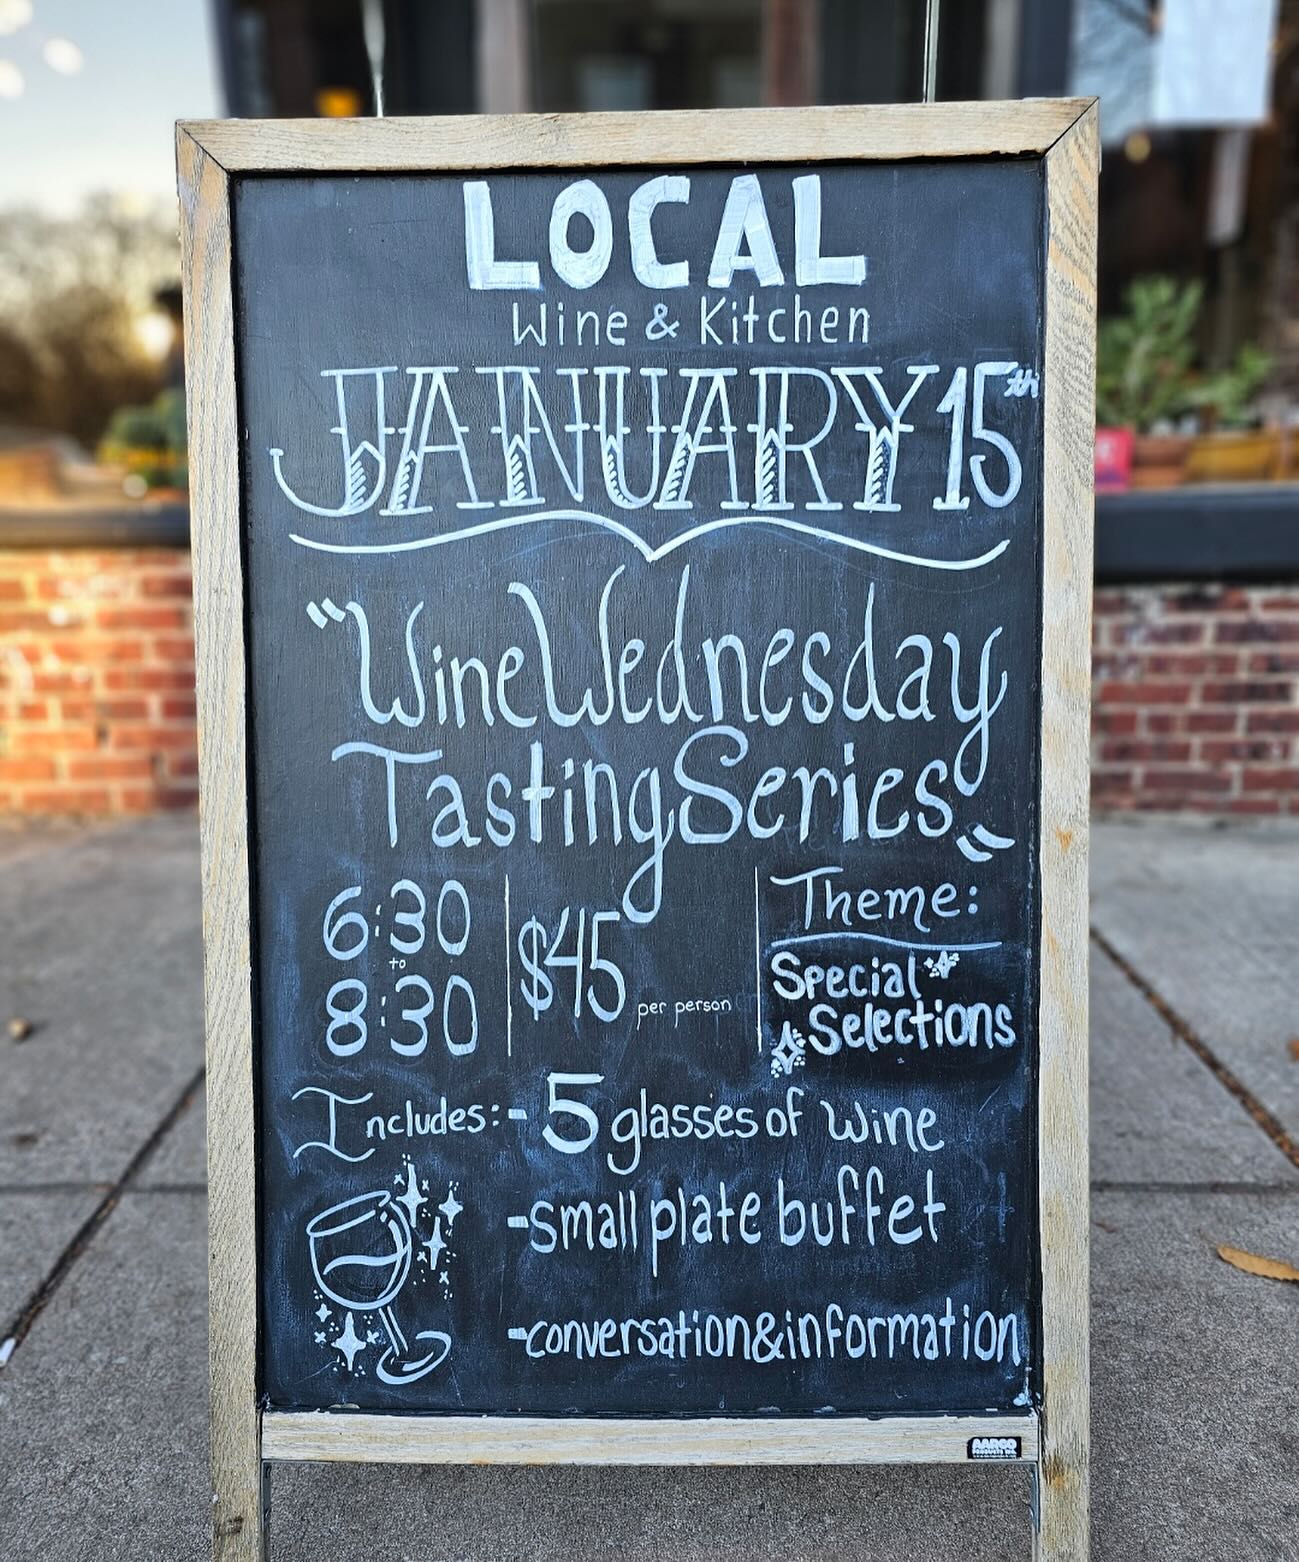 LOCAL
Wine & Kitchen
JANUARY 15th
"Wine Wednesday
Tasting Series"
6:30
to
8:30
$45
per person
Theme:
Special
Selections
Includes: - 5 glasses of wine
-small plate buffet
-conversation & information
AARCO